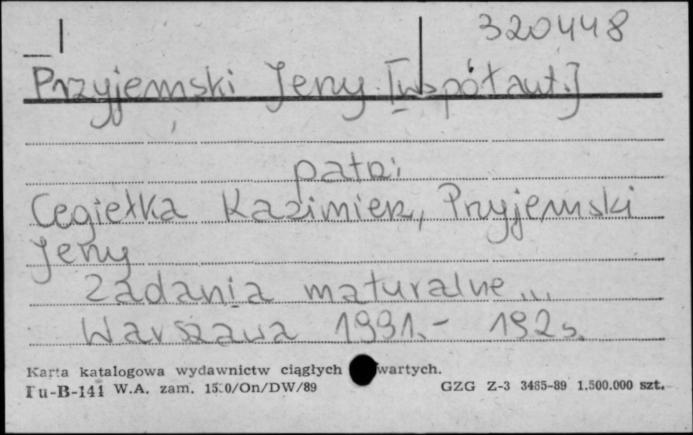 320448
Przyjemski Jerzy [współaut.]
patrz:
Cegiełka Kazimierz, Przyjemski
Jerzy
Zadania maturalne...
Warszawa 1991.- 192 s.
Karta katalogowa wydawnictw ciągłych wartych.
Pu-B-141 W.A. zam. 1530/On/DW/89 GZG Z-3 3485-89 1.500.000 szt.